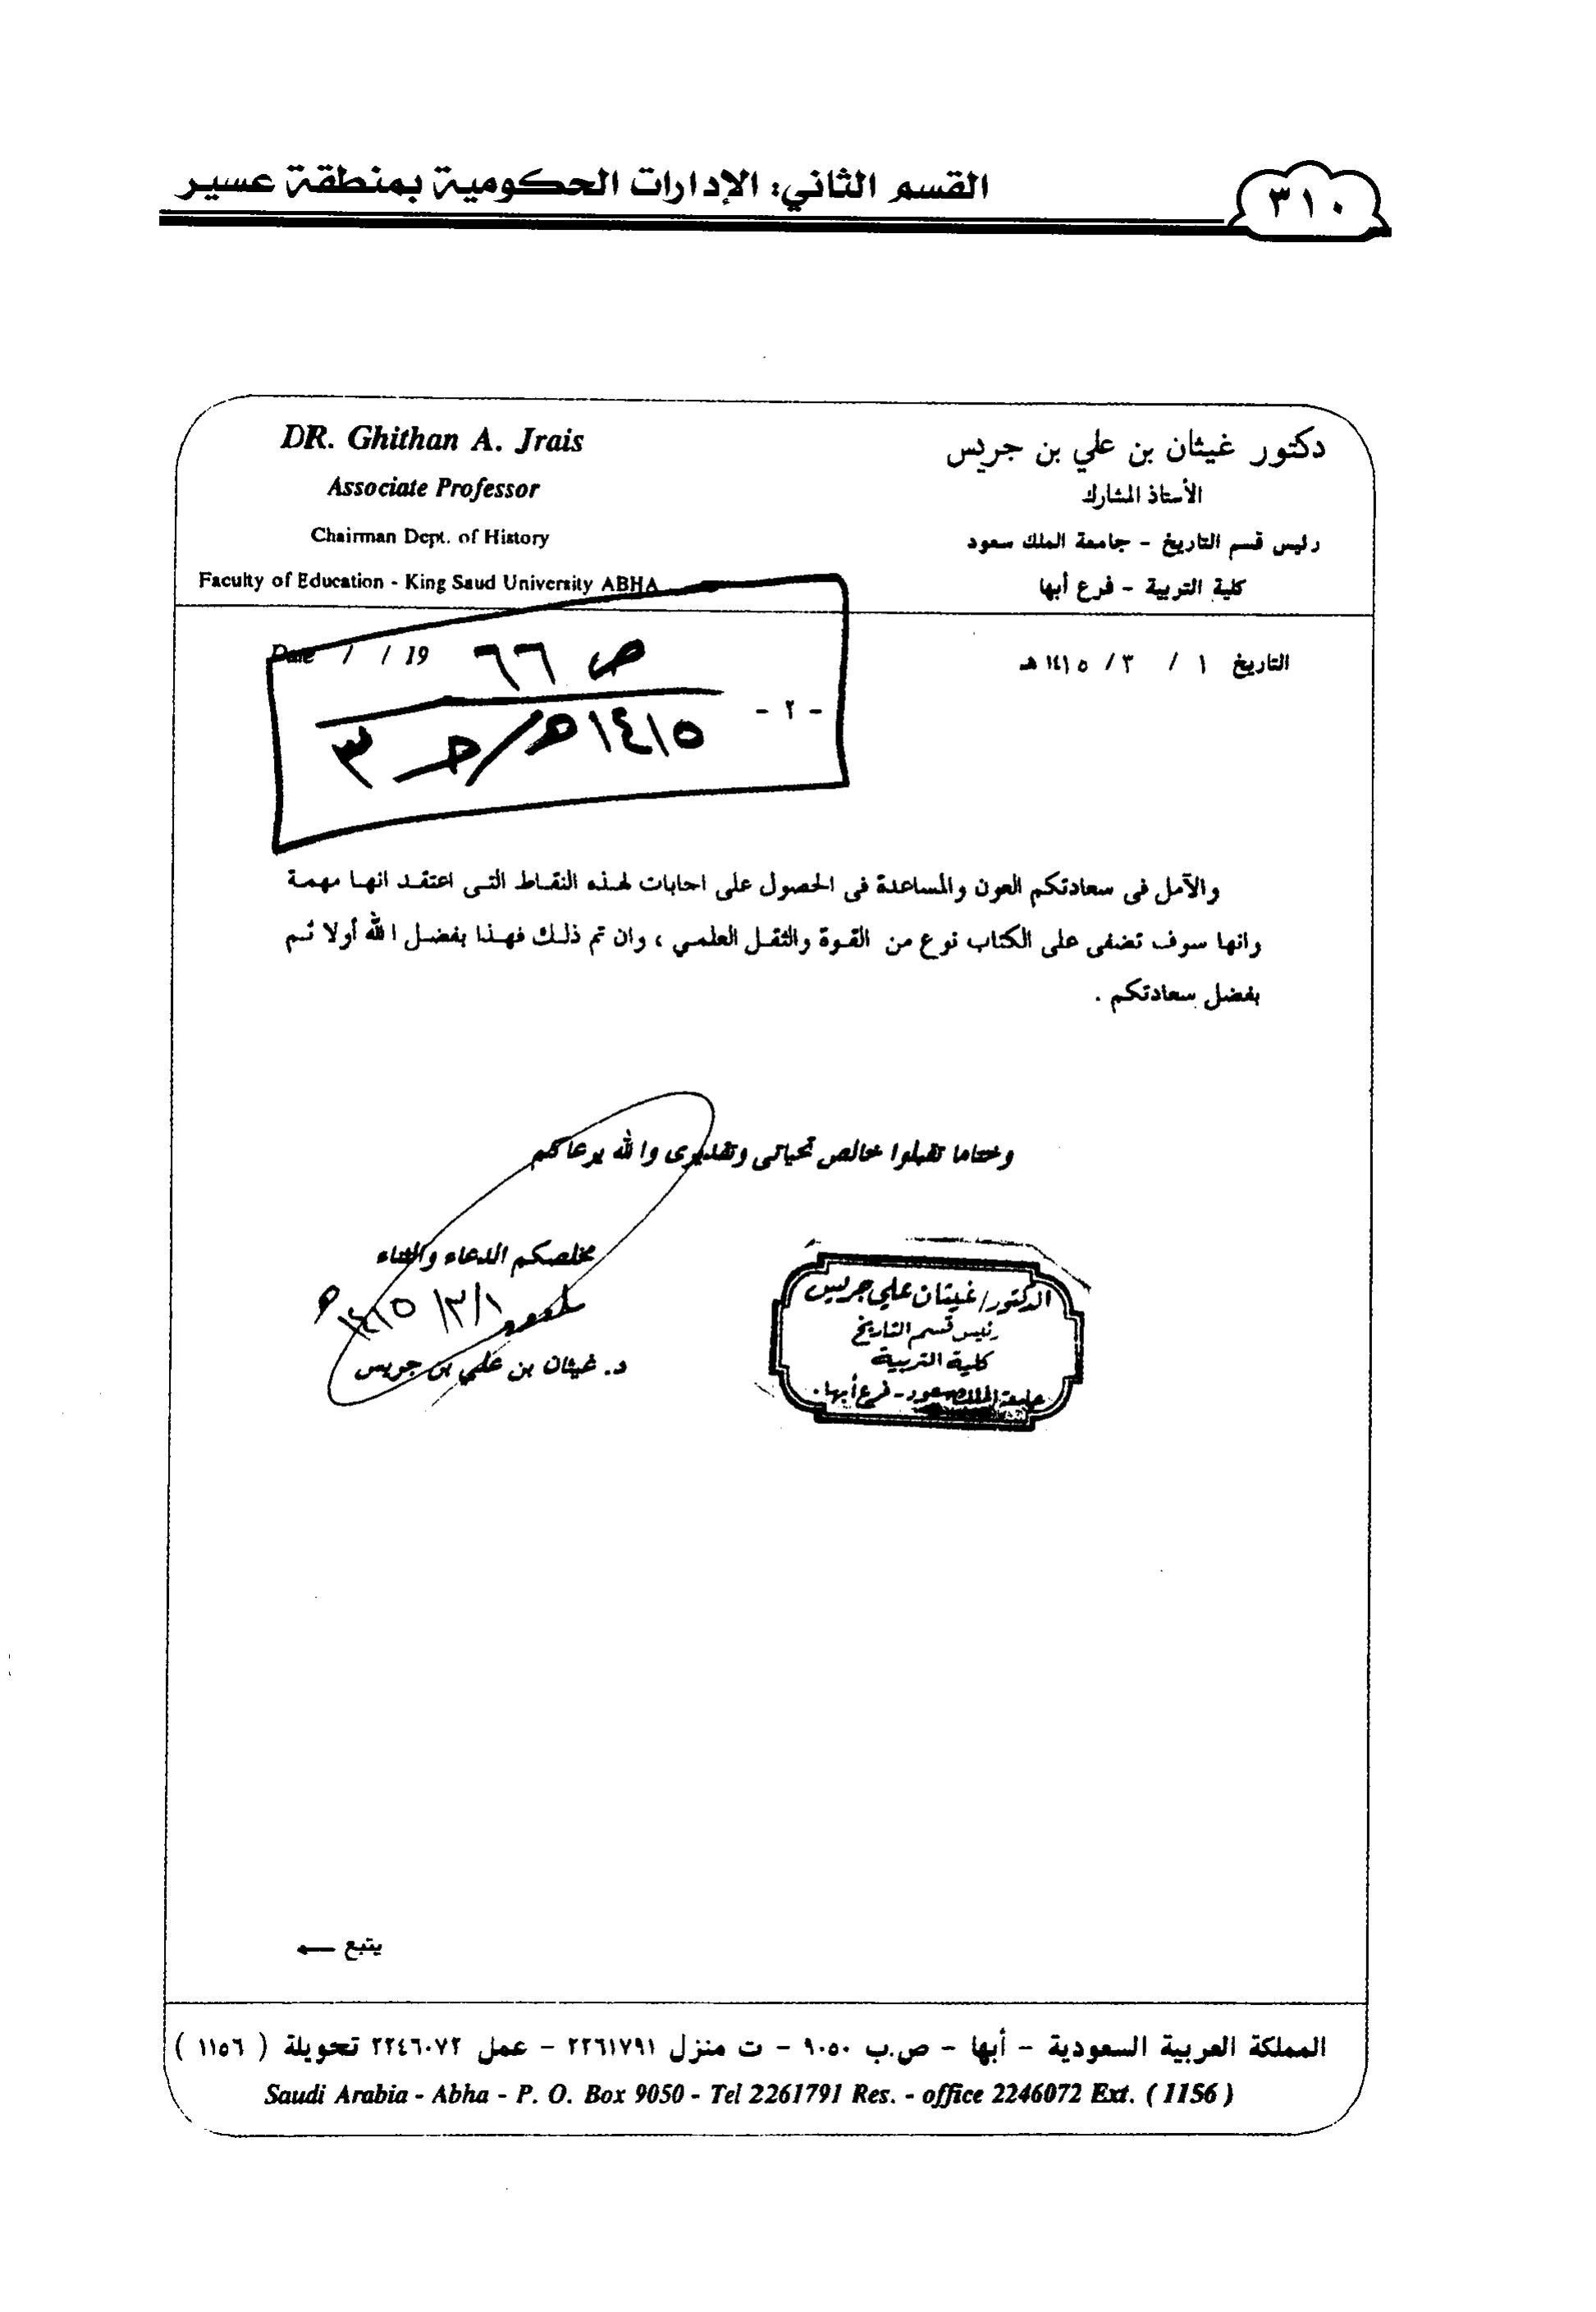 القسم الثاني: الإدارات الحكومية بمنطقة عسير
٣١٠
DR. Ghithan A. Jrais
Associate Professor
Chairman Dept. of History
Faculty of Education - King Saud University ABHA
دكتور غيثان بن علي بن جريس
الأستاذ المشارك
رئيس قسم التاريخ - جامعة الملك سعود
كلية التربية - فرع أبها
Date / / 19
التاريخ ١ / ٣ / ١٤١٥ هـ
ص ٦٦
١٤١٥هـ/حـ ٣
- ٢ -
والآمل فى سعادتكم العون والمساعدة فى الحصول على اجابات لهذه النقاط التى اعتقد انها مهمة
وانها سوف تضفى على الكتاب نوع من القوة والثقل العلمي ، وان تم ذلك فهذا بفضل الله أولا ثم
بفضل سعادتكم .
وختاما تقبلوا خالص تحياتى وتقديرى والله يرعاكم
مخلصكم الدعاء والثناء
١/٣/ ١٤١٥ هـ
د. غيثان بن علي بن جريس
الدكتور/غيثان علي جريس
رئيس قسم التاريخ
كلية التربية
جامعة الملك سعود - فرع أبها.
يتبع ←
المملكة العربية السعودية - أبها - ص.ب ٩٠٥٠ - ت منزل ٢٢٦١٧٩١ - عمل ٢٢٤٦٠٧٢ تحويلة ( ١١٥٦ )
Saudi Arabia - Abha - P. O. Box 9050 - Tel 2261791 Res. - office 2246072 Ext. ( 1156 )